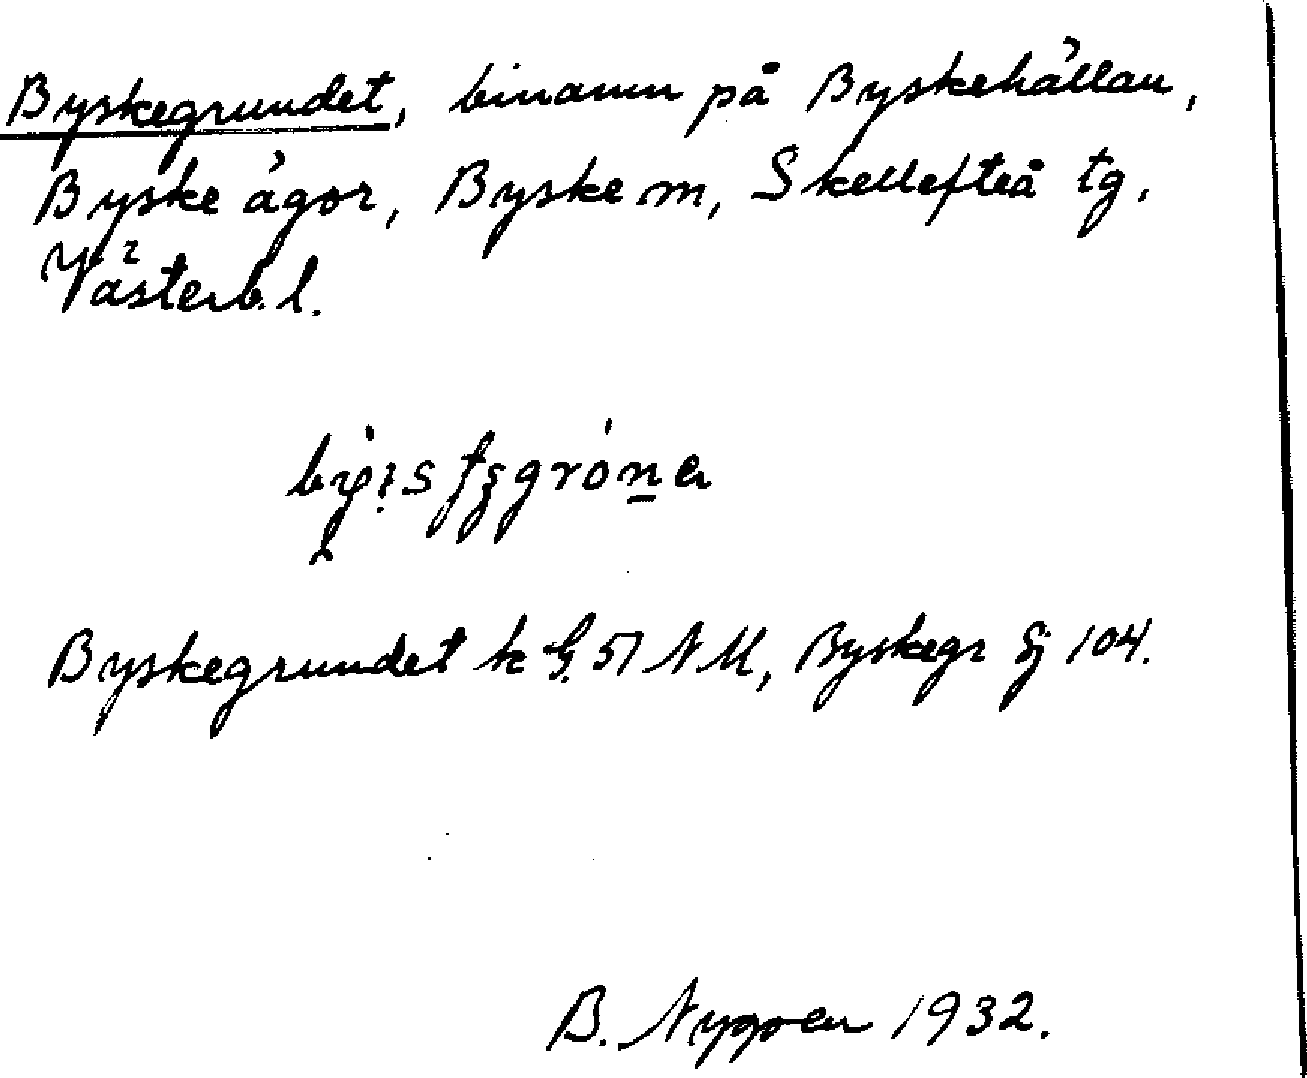 Byskegrundet, binamn på Byskehällan,
Byske ägor, Byske sn, Skellefteå tg,
Västerb. l.
Byskegrundet k G. 51 N M, Byskegr Sj 104.
B. Nygren 1932.